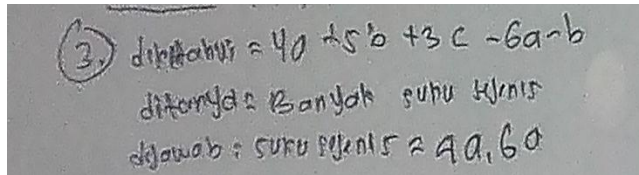 3. diketahui = 4a + 5b + 3c - 6a - b
ditanya = Banyak suku sejenis
dijawab : suku sejenis = 4a, 6a